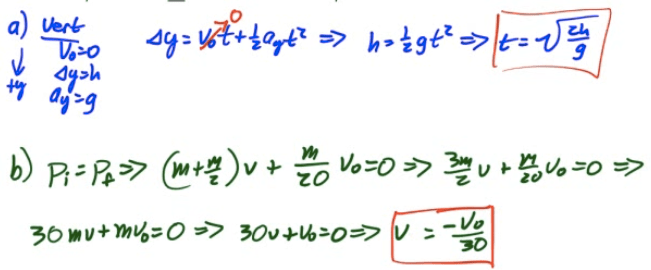 a) Vert
V₀=0
Δy=h
a_y=g
↓ +y
Δy = V₀t→0 + ½a_yt² => h = ½gt² => t = √(2h/g)
b) P_i = P_f => (m + m/2)v + m/20 V₀ = 0 => 3m/2 v + m/20 V₀ = 0 =>
30mv + mV₀ = 0 => 30v + V₀ = 0 => v = -V₀/30